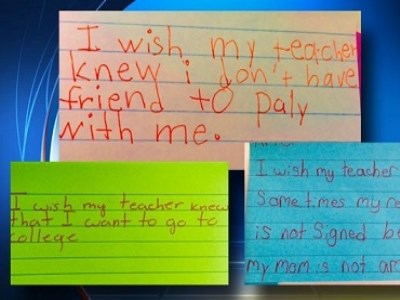 I wish my teacher
knew i don't have
friend to paly
with me.
I wish my teacher knew
that I want to go to
college
I wish my teacher
Sometimes my re
is not signed be
my mom is not am